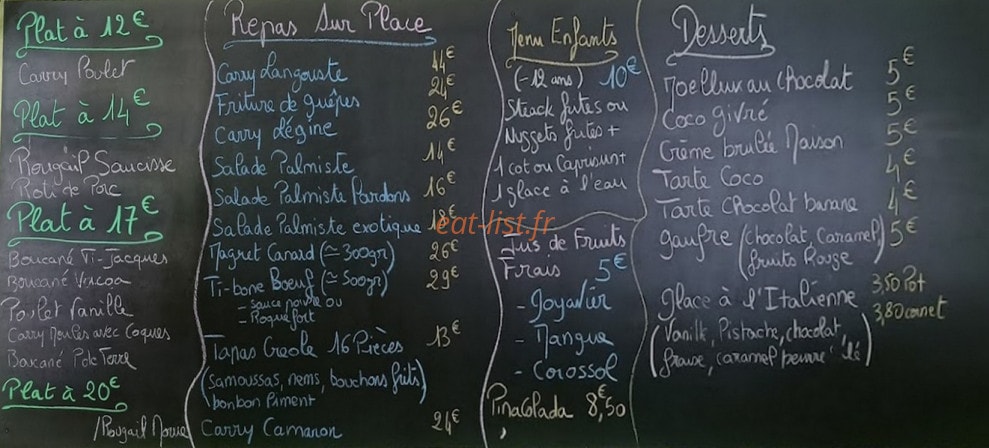 Plat à 12€
Carry Poulet
Plat à 14€
Rougail Saucisse
Roti de Porc
Plat à 17€
Boucané Ti-Jacques
Boucané Vercoa
Poulet Vanille
Carry Moules avec Coques
Boucané Pdc Terre
Plat à 20€
/Rougail Morue
Repas Sur Place
Carry Langouste 44€
Friture de guêpes 24€
Carry Légine 26€
Salade Palmiste 14€
Salade Palmiste Pardons 16€
Salade Palmiste exotique 18€
Magret Canard (≃ 300gr) 26€
Ti-bone Boeuf (≃ 500gr) 29€
- sauce poivre ou
- Roquefort
Tapas Creole 16 Pièces 13€
(samoussas, nems, bouchons frits)
bonbon Piment
Carry Camaron 24€
Menu Enfants
(-12 ans) 10€
Steack frites ou
Nuggets frites +
1 cot ou Caprisun +
1 glace à l'eau
Jus de Fruits
Frais 5€
- Goyavier
- Mangue
- Corossol
Pinacolada 8€,50
Desserts
Moelleux au Chocolat 5€
Coco givré 5€
Crème brulée Maison 5€
Tarte Coco 4€
Tarte Chocolat banane 4€
gaufre (chocolat, Caramel, 5€
fruits Rouge)
Glace à l'Italienne 3,50 Pot
3,80 cornet
(Vanille, Pistache, chocolat,
fraise, caramel beurre lé)
eat-list.fr